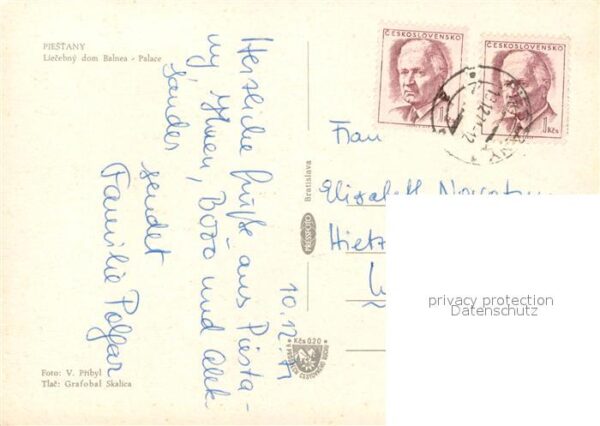 PIEŠŤANY
Liečebný dom Balnea - Palace
Herzliche Grüße aus Piešťa-
ny, Ihnen, Bozo und Alek-
sander
sendet
Familie Polgar
10.12.71
Foto: V. Přibyl
Tlač: Grafobal Skalica
Bratislava
PRESSFOTO
Kčs 0,20
ČESKOSLOVENSKO
1 Kčs
ČESKOSLOVENSKO
1 Kčs
Frau
Elisabeth
Hietz
privacy protection
Datenschutz